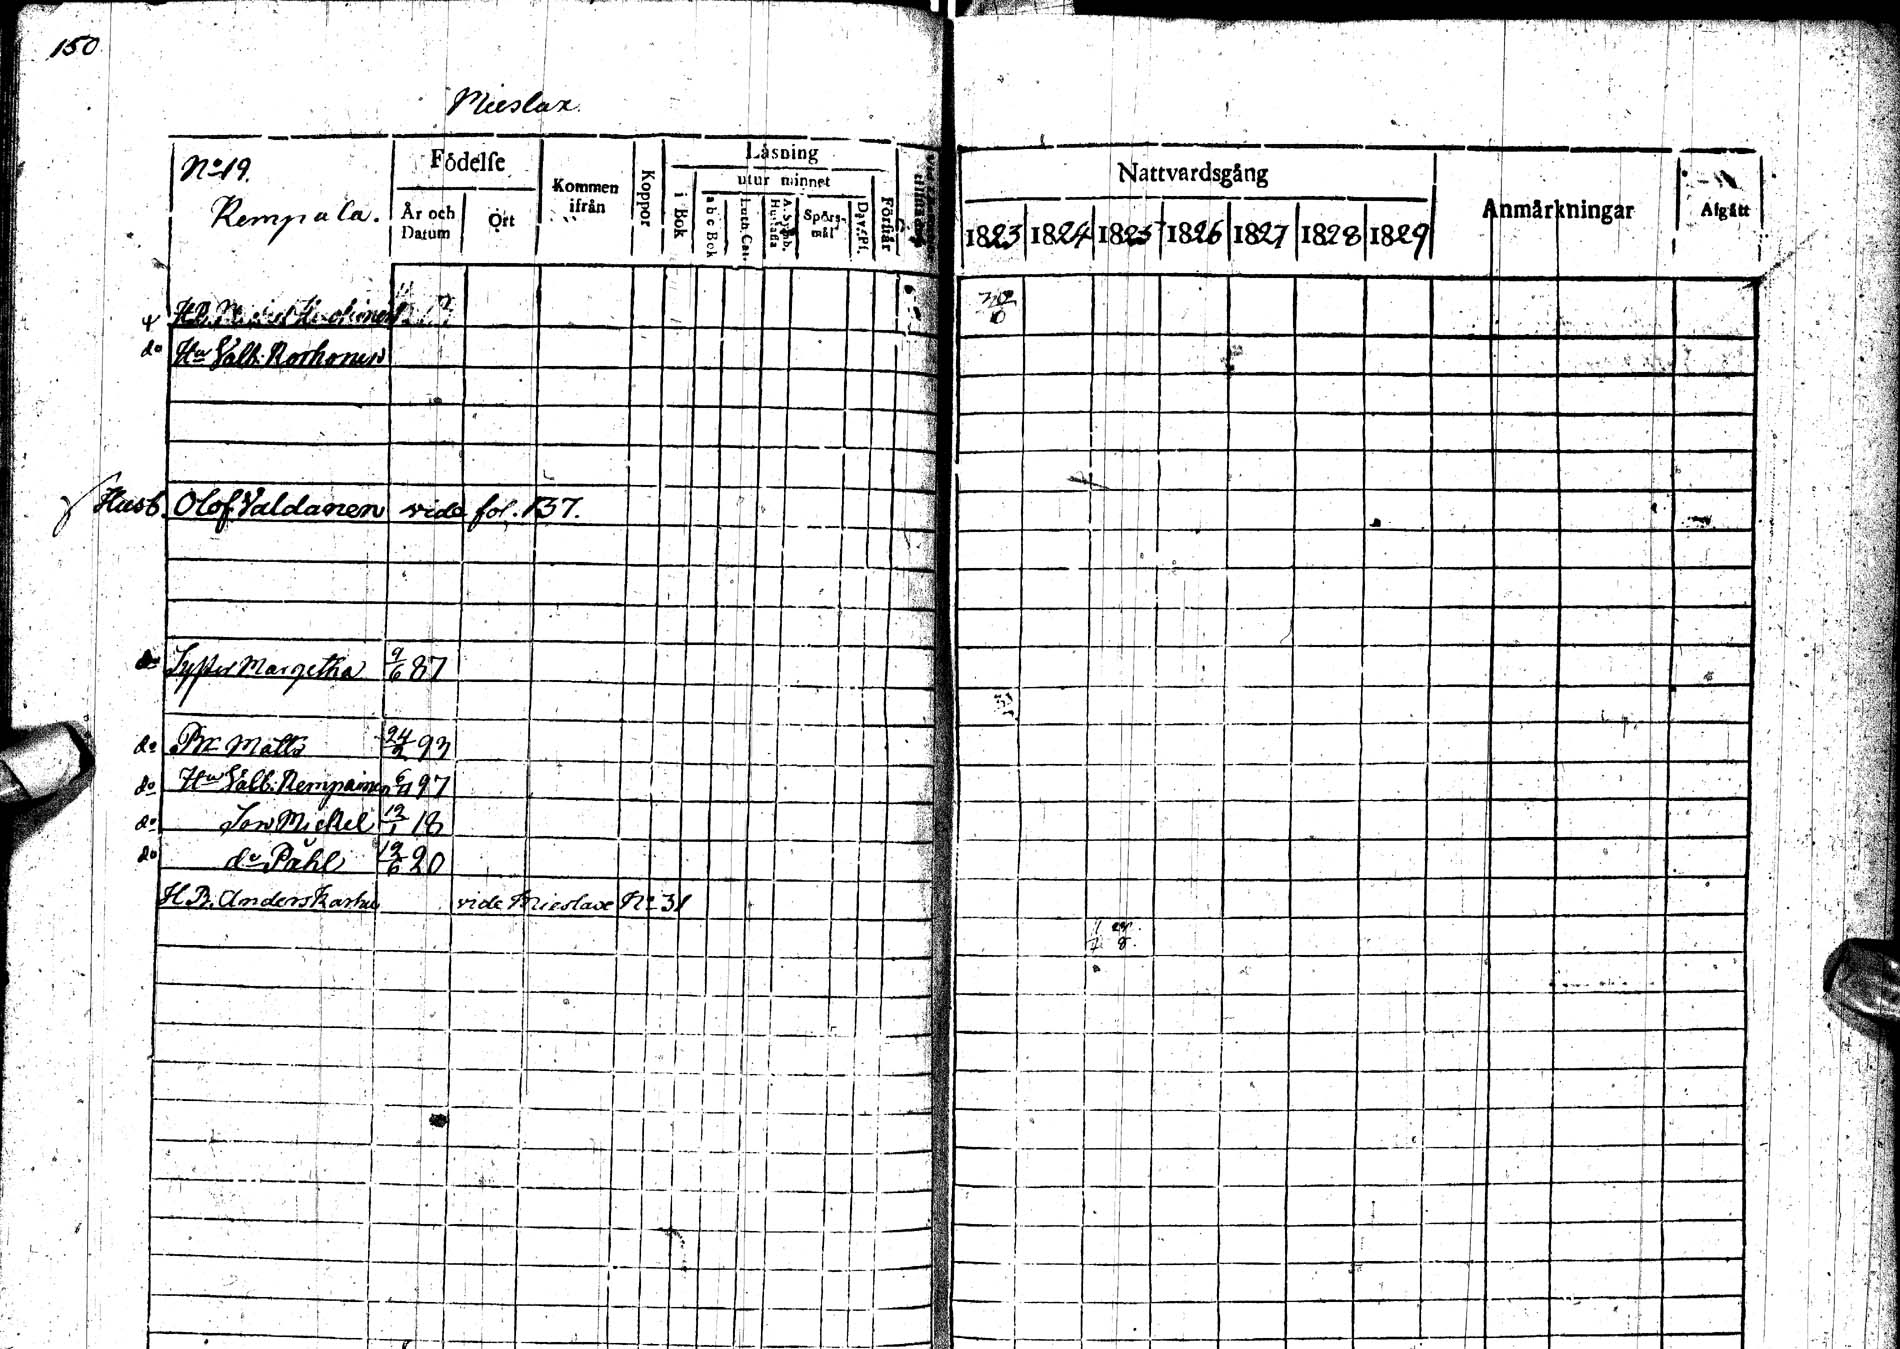 150
Mieslax.
No 19.
Rempala.
Födelse
År och Datum
Ort
Kommen ifrån
Koppor
Läsning
i Bok
utur minnet
a b c Bok
Luth. Cat.
A. Symb. Hustafla
Spörs-mål
Dav. Ps.
Förstår
Nattvardsgång
1823 1824 1825 1826 1827 1828 1829
Anmärkningar
Afgått
H.B.
do Hu Valb. Korhonen
Husb. Olof Valdanen vide fol. 137.
Syster Margetha 9/6 87
do Br. Matts 24/2 93
do Hu Valb. Kempainen 97
do Son Mickel 12/1 18
do do Påhl 12/6 20
H.B. Anders Karhu vide Mieslax No 31